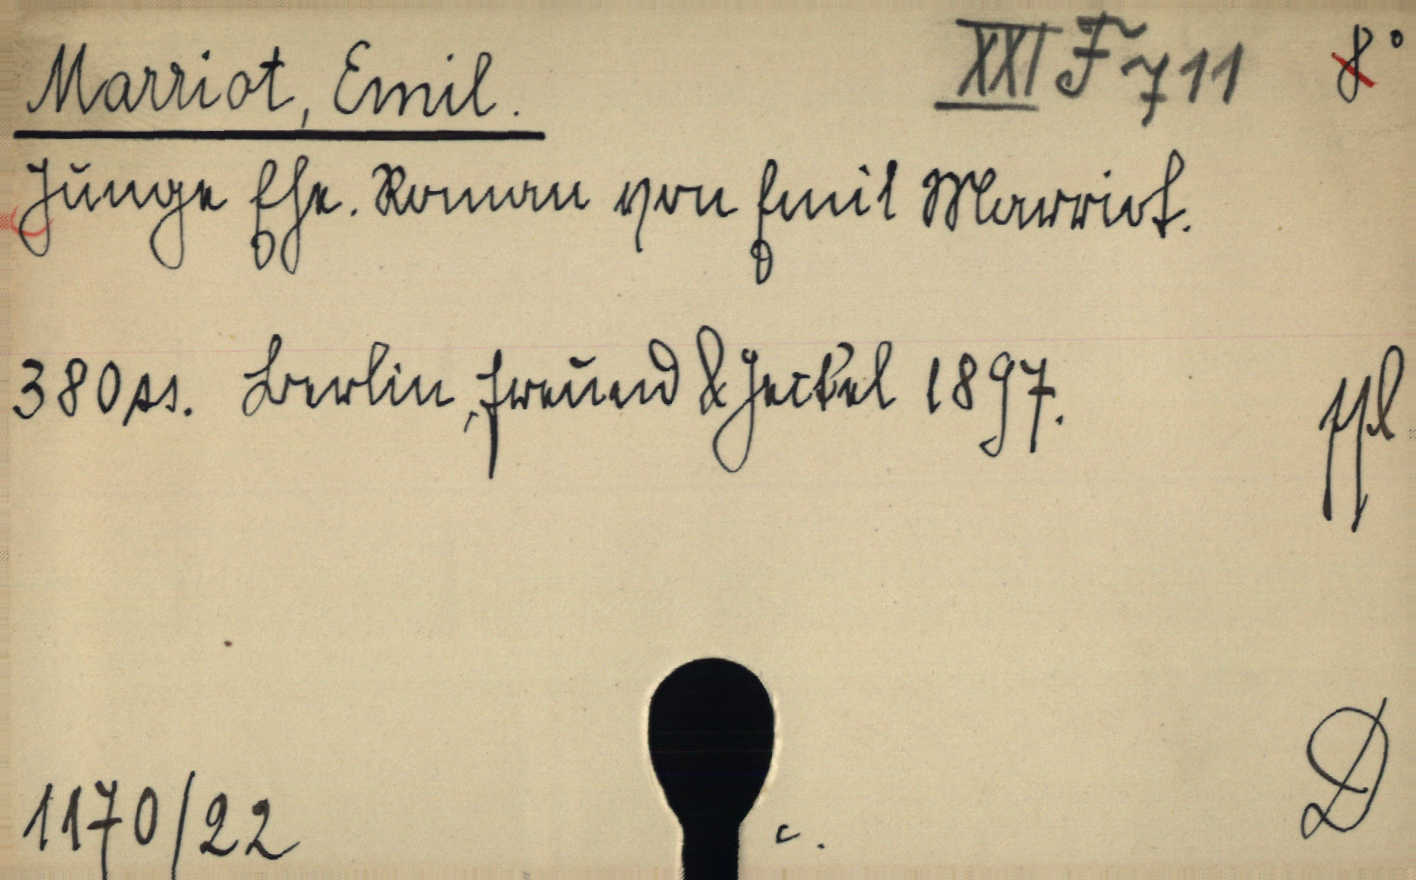 Marriot, Emil. XXI F 711 8°
Junge Ehe. Roman von Emil Marriot.
380 ss. Berlin, Freund & Jeckel 1897.
D
1170/22 c.